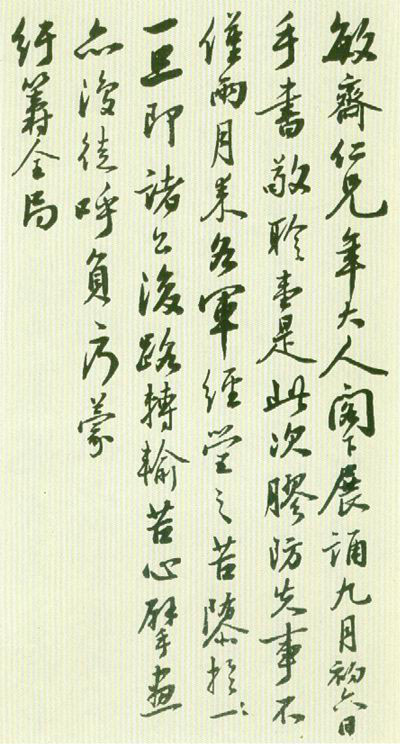 敏齋仁兄年大人閣下展誦九月初六日
手書敬聆壹是此次膠防失事不
僅兩月來各軍經營之苦隳於一
旦即諸公後路轉輸苦心擘畫
亦復徒呼負負蒙
紆籌全局